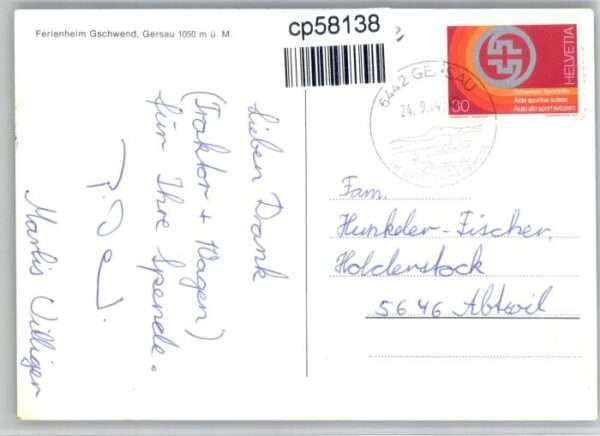 Ferienheim Gschwend, Gersau 1050 m ü. M.
cp58138
HELVETIA
Schweizer Sporthilfe
Aide sportive suisse
Aiuto allo sport svizzero
30
6442 GERSAU
24.9.74
Lieben Dank
(Traktor + Wagen)
für Ihre Spende.
Marlis Villiger
Fam.
Hunkeler-Fischer,
Holderstock
5646 Abtwil